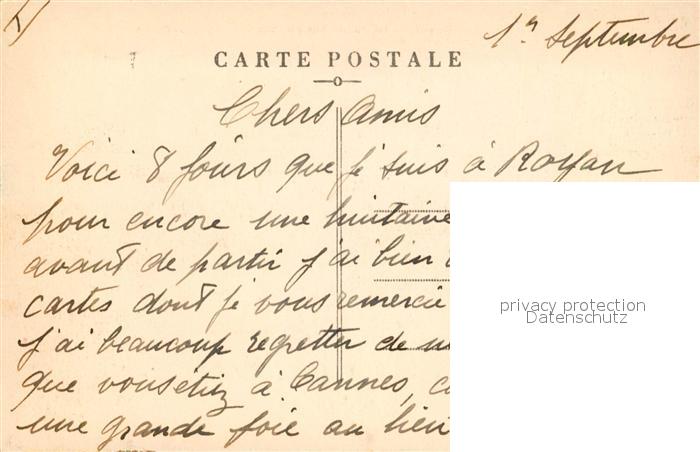 1er Septembre
CARTE POSTALE
Chers Amis
Voici 8 jours que je suis à Royan
pour encore une huitaine
avant de partir j'ai bien
cartes dont je vous remercie
privacy protection
Datenschutz
j'ai beaucoup regretter de
que vous etiez à Cannes,
une grande foie au lieu